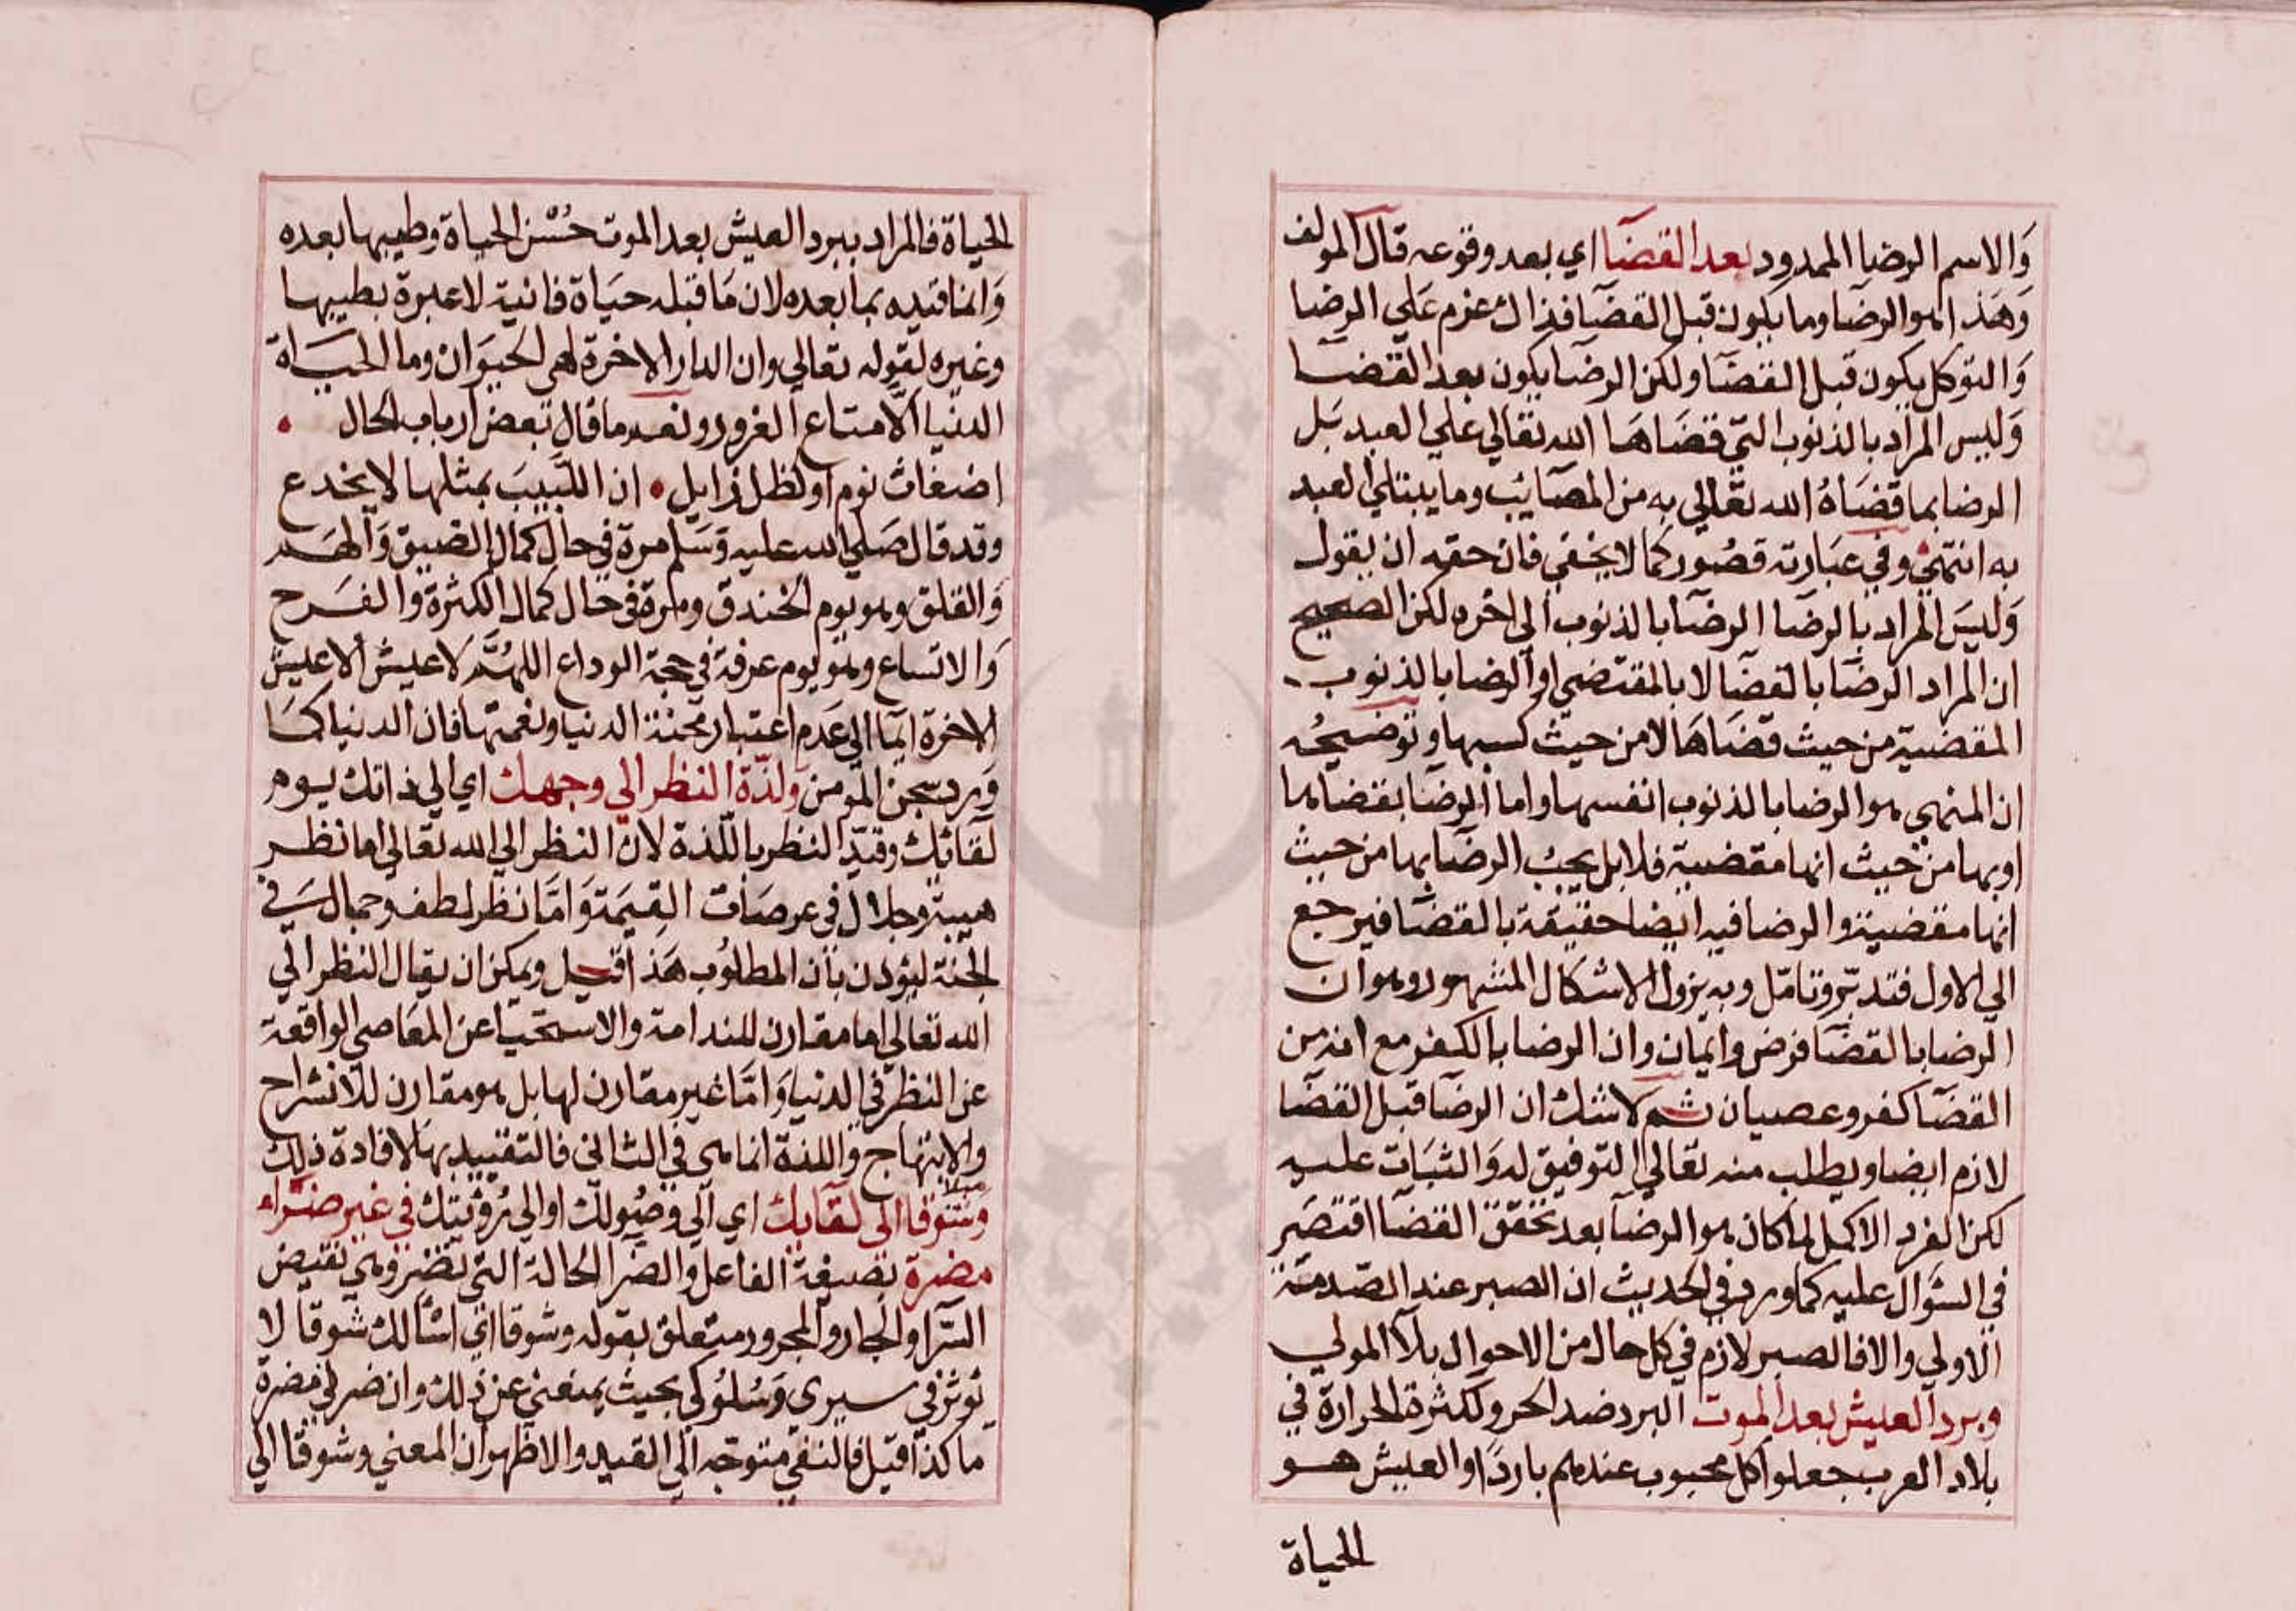 وَالاسم الرضا الممدود بعد القضآ اي بعد وقوعه قال المولف
وَهَذا هو الرضا وما يكون قبل القضَا فذاك عزم عَلي الرضا
وَالتوكل يكون قبل القضَا ولكن الرضَا يكون بعد القضَا
وَليس المراد بالذنوب التي قضَاهَا الله تعَالي علي العبد بَل
الرضا بما قضَاهُ الله تعَالي به من المصَائب وما يبتلي العبد
به انتهي وفي عبَارته قصُور كما لا يخفي فان حقه ان يقول
وَليسَ المراد بالرضَا الرضَا بالذنوب الي اخره لكن الصحيح
ان المراد الرضَا بالقضَا لا بالمقتضي او الرضا بالذنوب
المقضية من حيث قضَاهَا لا من حيث كسبها وتوضيحُه
ان المنهي هو الرضا بالذنوب انفسها واما الرضَا بقضَاها
او بها من حيث انها مقضية فلا بل يجبُ الرضَا بها من حيث
انها مقضية والرضا فيه ايضا حقيقة بالقضَا فيرجع
الي الاول فتدبّر وتامّل وبه يزول الاشكال المشهور وهو ان
الرضا بالقضَا فرض وايمان وان الرضا بالكفر مع انه من
القضَا كفر وعصيان ثم لا شك ان الرضَا قبل القضَا
لازم ايضا ويطلب منه تعَالي التوفيق له وَالثبَات عليه
لكن الفرد الاكمل لما كان هو الرضآ بعد تحقق القضَا اقتصَر
في السؤال عليه كما ورد في الحديث ان الصبر عند الصّدمة
الاولي والا فالصبر لازم في كل حال من الاحوال بلآ المولي
وبرد العيش بعد الموت البرد ضد الحر ولكثرة الحرارة في
بلاد العرب جعلوا كل محبوب عندهم باردًا والعيش هو
الحياة
الحياة فالمراد ببرد العيش بعد الموت حُسْن الحياة وطيبها بعده
وَانما قيده بما بعده لان مَا قبله حيَاة فانية لا عبرة بطيبها
وغيره لقوله تعالي وان الدار الاخرة لهي الحيوَان وما الحيَاة
الدنيا الا متاع الغرور ونعم ما قال بعض ارباب الحال
اضغاث نوم او كظل زايل ان اللبيبَ بمثلها لا يخدع
وقد قال صَلي الله عليه وَسَلم مرة في حال كمال الضيق وَالهَم
وَالقلق وهو يوم الخندق ومرة في حال كمال الكثرة والفَرح
وَالاتساع وهو يوم عرفة في حجة الوداع اللهُمَّ لا عيش الا عيش
الاخرة ايمآ الي عَدم اعتبار محنة الدنيا ونعمتها فان الدنيا كمَا
وَرد سجن المومن ولذّة النظر الي وجهك اي الي ذاتك يوم
لقائك وقيّد النظر باللّذة لان النظر الي الله تعَالي اما نظر
هيبة وجلال في عرصَات القيمَة وَامَّا نظر لطف وجمال في
الجنة ليؤذن بأن المطلوُب هَذا قيل ويمكن ان يقال النظر الي
الله تعَالي اما مقارن للندامة والاستحيا عن المعَاصي الواقعة
عن النظر في الدنيا وَامّا غير مقارن لها بل هو مقارن للانشراح
والابتهاج واللذة انما هي في الثاني فالتقييد بها لافادة ذلك
وشوقا الي لقآيك اي الي وصُولك او الي رُؤيتك في غير ضرّاء
مضرة بصيغة الفاعل والضّر الحالة التي تضر وهي نقيض
السّرا والجار والمجرور متعلق بقوله وشوقا اي اسْألك شوقا لا
يُوثر في سيري وَسُلوُكي بحيث يمنعني عن ذلك وان ضرني مضرة
ما كذا قيل فالنفي متوجه الي القيد والاظهر ان المعني وشوقا الي